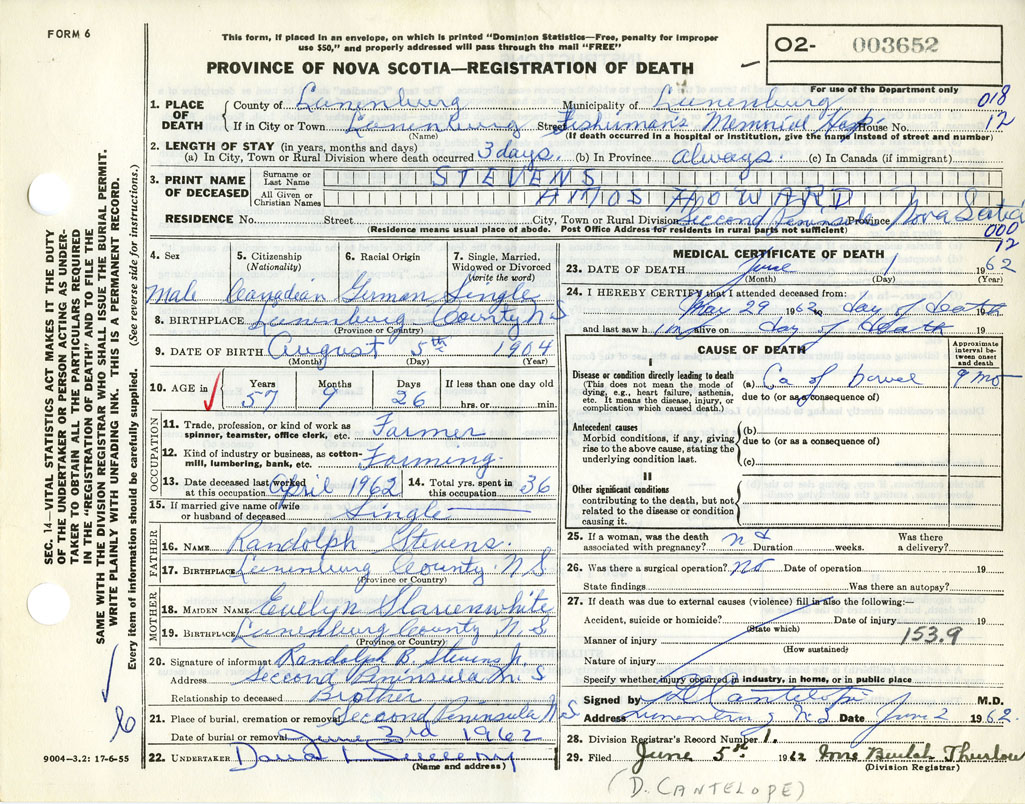 FORM 6
This form, if placed in an envelope, on which is printed "Dominion Statistics—Free, penalty for improper
use $50," and properly addressed will pass through the mail "FREE"
PROVINCE OF NOVA SCOTIA—REGISTRATION OF DEATH
02- 003652
For use of the Department only
018
12
1. PLACE OF DEATH County of Lunenburg Municipality of Lunenburg
If in City or Town Lunenburg Street Fisherman's Memorial Hosp. House No.
(Name) (If death occurred in a hospital or institution, give the name instead of street and number)
2. LENGTH OF STAY (in years, months and days)
(a) In City, Town or Rural Division where death occurred 3 days. (b) In Province always. (c) In Canada (if immigrant)
3. PRINT NAME OF DECEASED Surname or Last Name STEVENS
All Given or Christian Names AMOS HOWARD
RESIDENCE No. Street City, Town or Rural Division Second Peninsula Province Nova Scotia
(Residence means usual place of abode. Post Office Address for residents in rural parts not sufficient)
000
12
4. Sex 5. Citizenship (Nationality) 6. Racial Origin 7. Single, Married, Widowed or Divorced (write the word)
Male Canadian German Single
8. BIRTHPLACE Lunenburg County N S
(Province or Country)
9. DATE OF BIRTH August 5th 1904
(Month) (Day) (Year)
10. AGE in Years Months Days If less than one day old
57 9 26 hrs. or min.
OCCUPATION
11. Trade, profession, or kind of work as spinner, teamster, office clerk, etc. Farmer
12. Kind of industry or business, as cotton-mill, lumbering, bank, etc. Farming.
13. Date deceased last worked at this occupation April 1962 14. Total yrs. spent in this occupation 36
15. If married give name of wife or husband of deceased Single
FATHER
16. NAME Randolph Stevens.
17. BIRTHPLACE Lunenburg County N S
(Province or Country)
MOTHER
18. MAIDEN NAME Evelyn Slauenwhite
19. BIRTHPLACE Lunenburg County N S
(Province or Country)
20. Signature of informant Randolph B. Stevens Jr.
Address Second Peninsula N S
Relationship to deceased Brother
21. Place of burial, cremation or removal Second Peninsula N S
Date of burial or removal June 3rd 1962
22. UNDERTAKER David
(Name and address)
MEDICAL CERTIFICATE OF DEATH
23. DATE OF DEATH June 1 1962
(Month) (Day) (Year)
24. I HEREBY CERTIFY that I attended deceased from:
May 29 1962 to day of death 19
and last saw him alive on day of death 19
CAUSE OF DEATH
Approximate interval between onset and death
I
Disease or condition directly leading to death
(This does not mean the mode of dying, e.g., heart failure, asthenia, etc. It means the disease, injury, or complication which caused death.)
(a) Ca of bowel 9 mo
due to (or as a consequence of)
Antecedent causes
Morbid conditions, if any, giving rise to the above cause, stating the underlying condition last.
(b)
due to (or as a consequence of)
(c)
II
Other significant conditions
contributing to the death, but not related to the disease or condition causing it.
25. If a woman, was the death associated with pregnancy? Duration weeks. Was there a delivery?
26. Was there a surgical operation? No Date of operation 19
State findings Was there an autopsy?
27. If death was due to external causes (violence) fill in also the following:—
Accident, suicide or homicide? Date of injury 19
(State which)
Manner of injury 153.9
(How sustained)
Nature of injury
Specify whether injury occurred in industry, in home, or in public place
Signed by D Cantelope M.D.
Address Lunenburg N S Date June 2 1962.
28. Division Registrar's Record Number 1.
29. Filed June 5th 1962 Mrs Beulah Thurlow
(Division Registrar)
(D. CANTELOPE)
SEC. 14—VITAL STATISTICS ACT MAKES IT THE DUTY
OF THE UNDERTAKER OR PERSON ACTING AS UNDER-
TAKER TO OBTAIN ALL THE PARTICULARS REQUIRED
IN THE "REGISTRATION OF DEATH" AND TO FILE THE
SAME WITH THE DIVISION REGISTRAR WHO SHALL ISSUE THE BURIAL PERMIT.
WRITE PLAINLY WITH UNFADING INK. THIS IS A PERMANENT RECORD.
Every item of information should be carefully supplied. (See reverse side for instructions.)
9004-3.2: 17-6-55